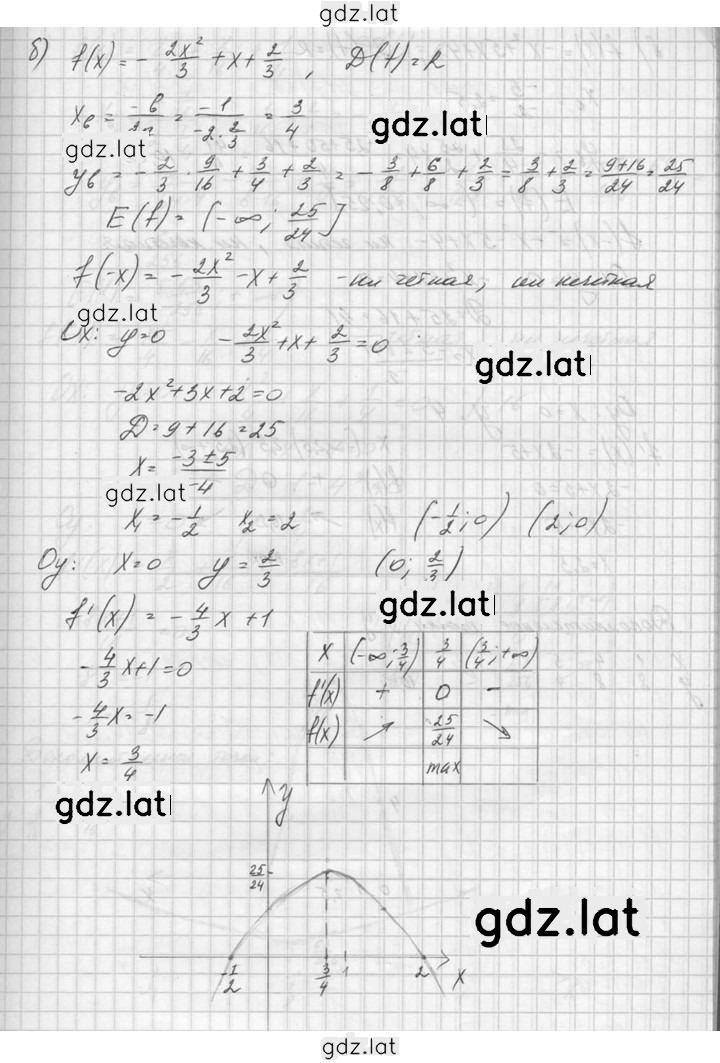 gdz.lat
б) f(x) = - 2x²/3 + x + 2/3 , D(f) = R
xв = -в/2a = -1/(-2·2/3) = 3/4
gdz.lat
gdz.lat
yв = - 2/3 · 9/16 + 3/4 + 2/3 = - 3/8 + 6/8 + 2/3 = 3/8 + 2/3 = (9+16)/24 = 25/24
E(f) = (-∞; 25/24]
f(-x) = - 2x²/3 - x + 2/3 - ни четная, ни нечетная
gdz.lat
Ox: y=0 - 2x²/3 + x + 2/3 = 0
gdz.lat
-2x²+3x+2=0
D=9+16=25
x = (-3±5)/-4
gdz.lat
x₁ = -1/2 x₂ = 2 (-1/2; 0) (2; 0)
Oy: x=0 y = 2/3 (0; 2/3)
gdz.lat
f'(x) = - 4/3 x + 1
- 4/3 x+1=0
- 4/3 x = -1
x = 3/4
x (-∞; 3/4) 3/4 (3/4; +∞)
f'(x) + 0 -
f(x) ↗ 25/24 ↘
max
gdz.lat
y
25/24
gdz.lat
-1/2 3/4 1 2 x
gdz.lat